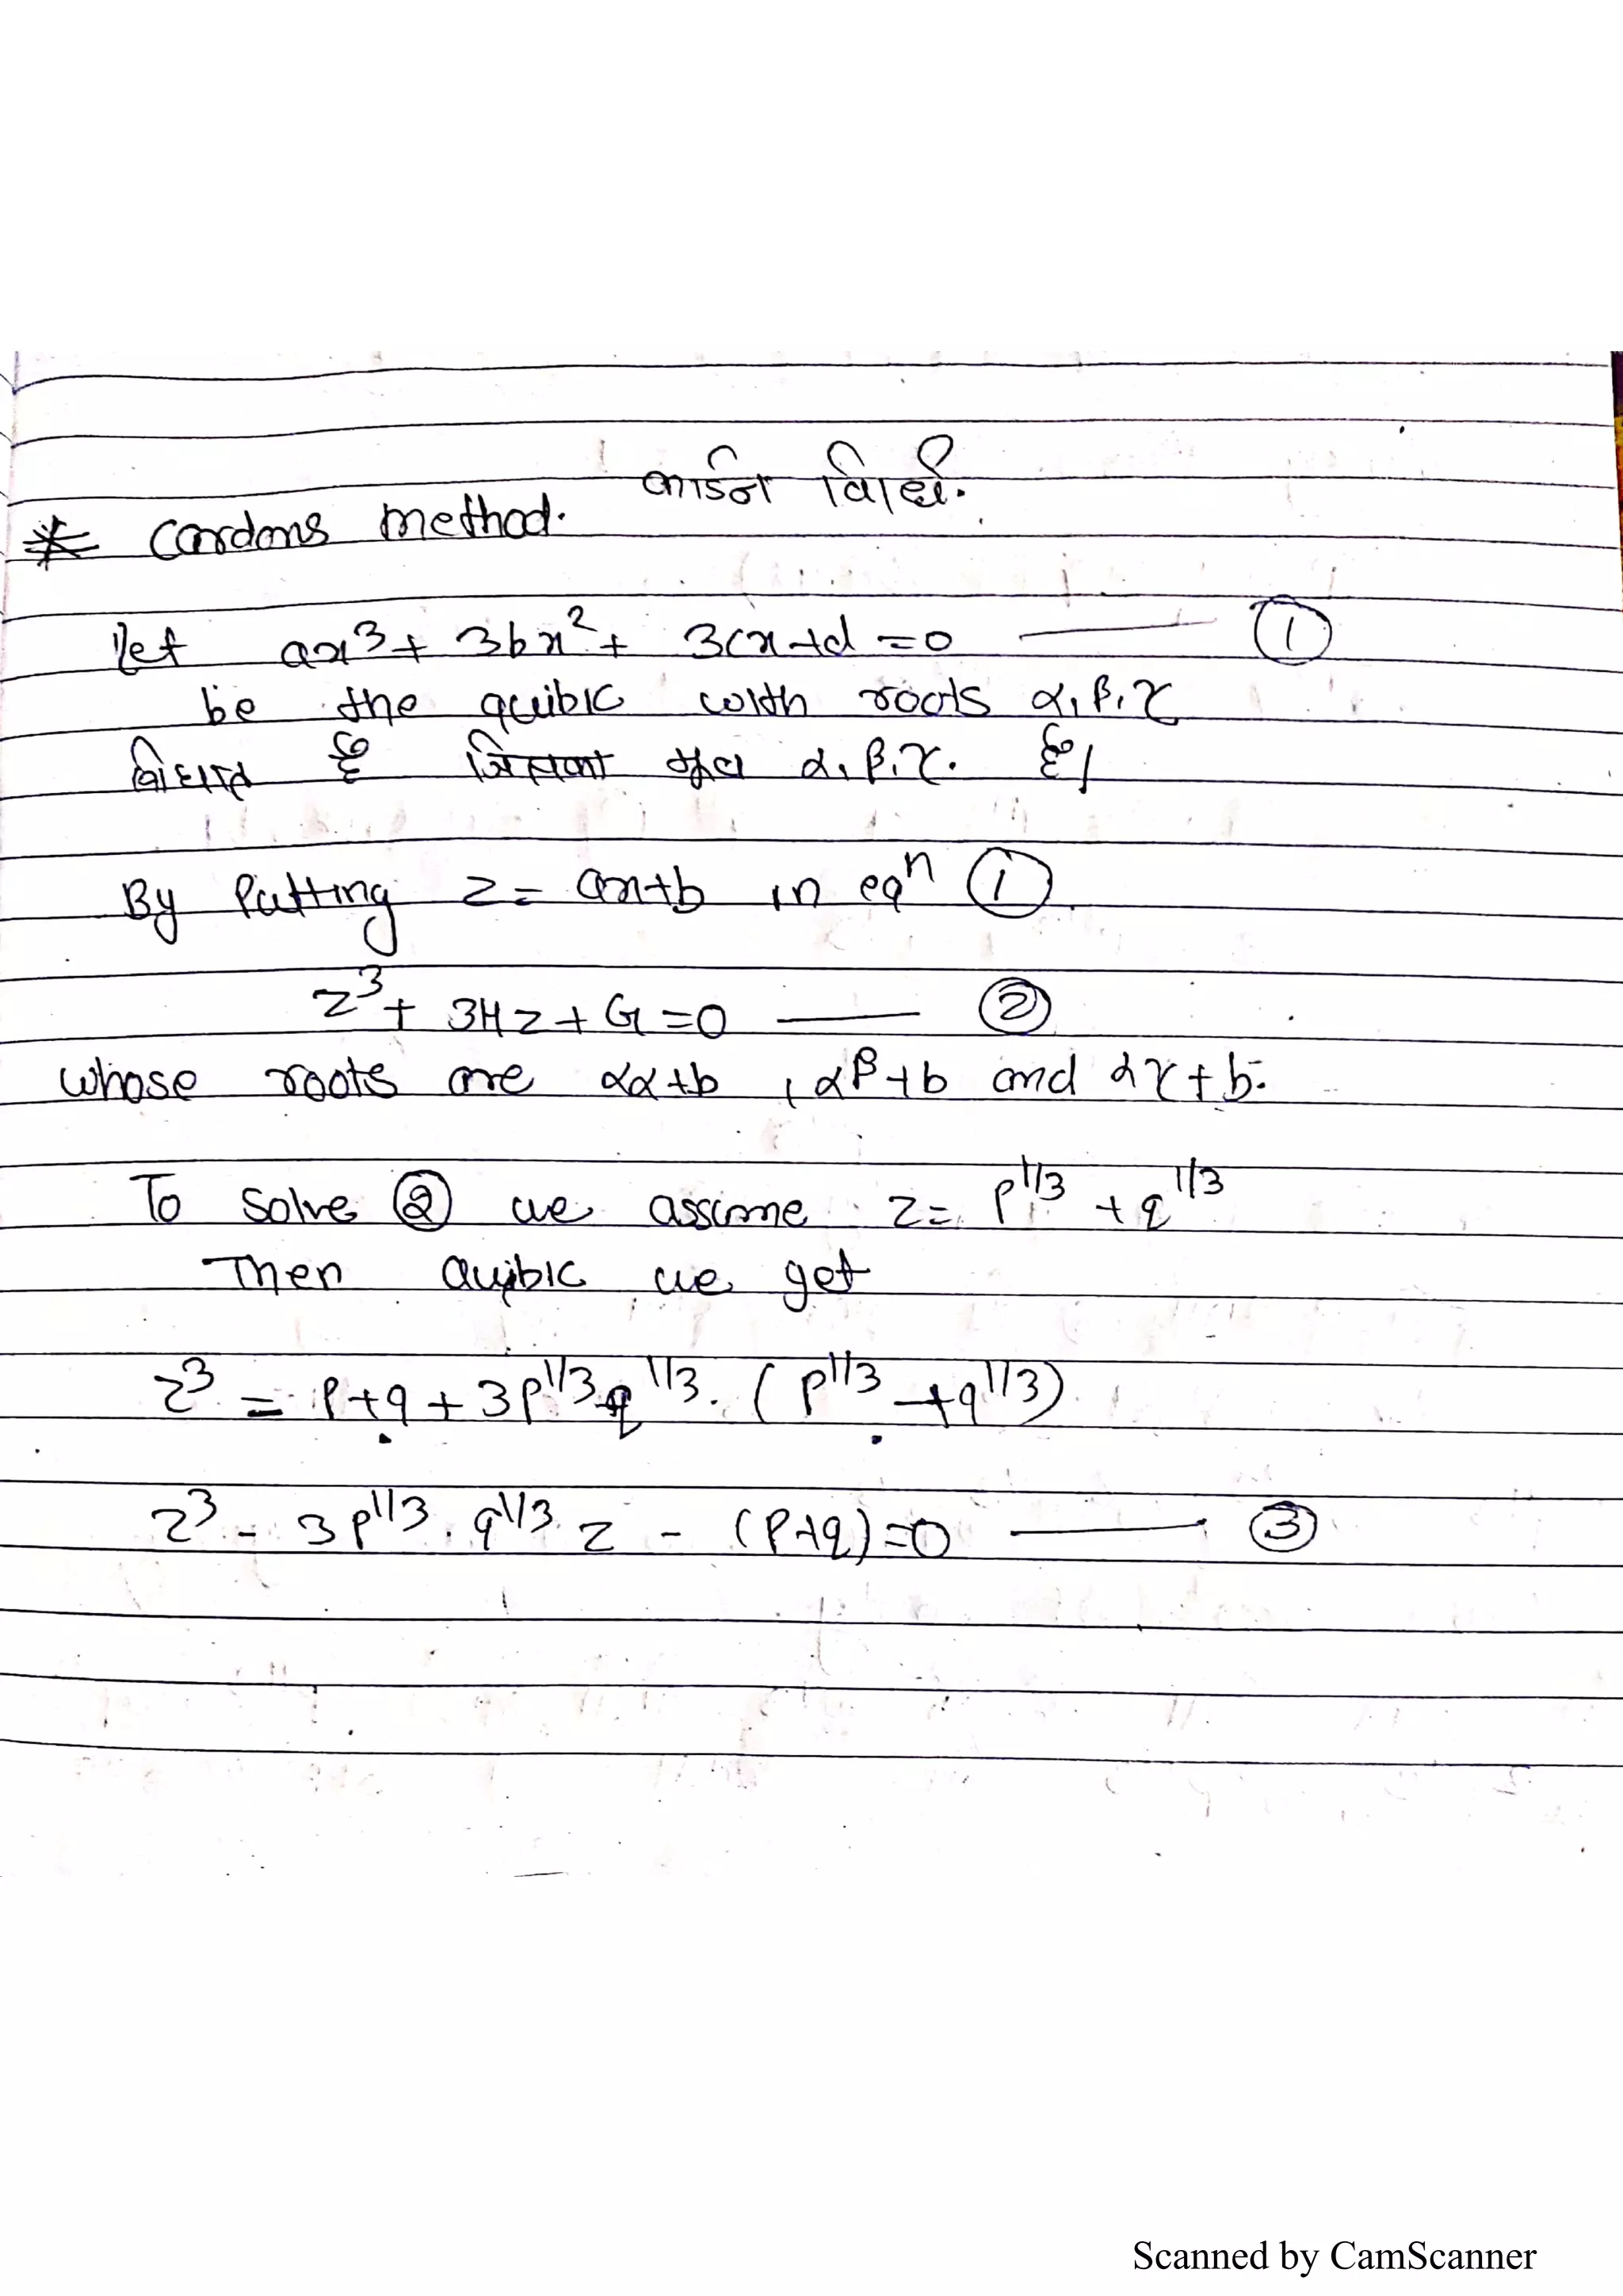 कार्डन विधि.
* Cardons method.
let ax³ + 3bx² + 3cx+d =0 —— ①
be the quibic with roots α, β, γ
त्रिघात है जिसका मूल α, β, γ. है।
By Putting z = ax+b in eqⁿ ①
z³ + 3Hz + G =0 —— ②
whose roots are αα+b , αβ+b and αγ+b.
To solve ② we assume z = p^1/3 + q^1/3
Then Quibic we get
z³ = p+q + 3p^1/3 q^1/3. (p^1/3 + q^1/3)
z³ - 3p^1/3. q^1/3 z - (p+q)=0 —— ③
Scanned by CamScanner